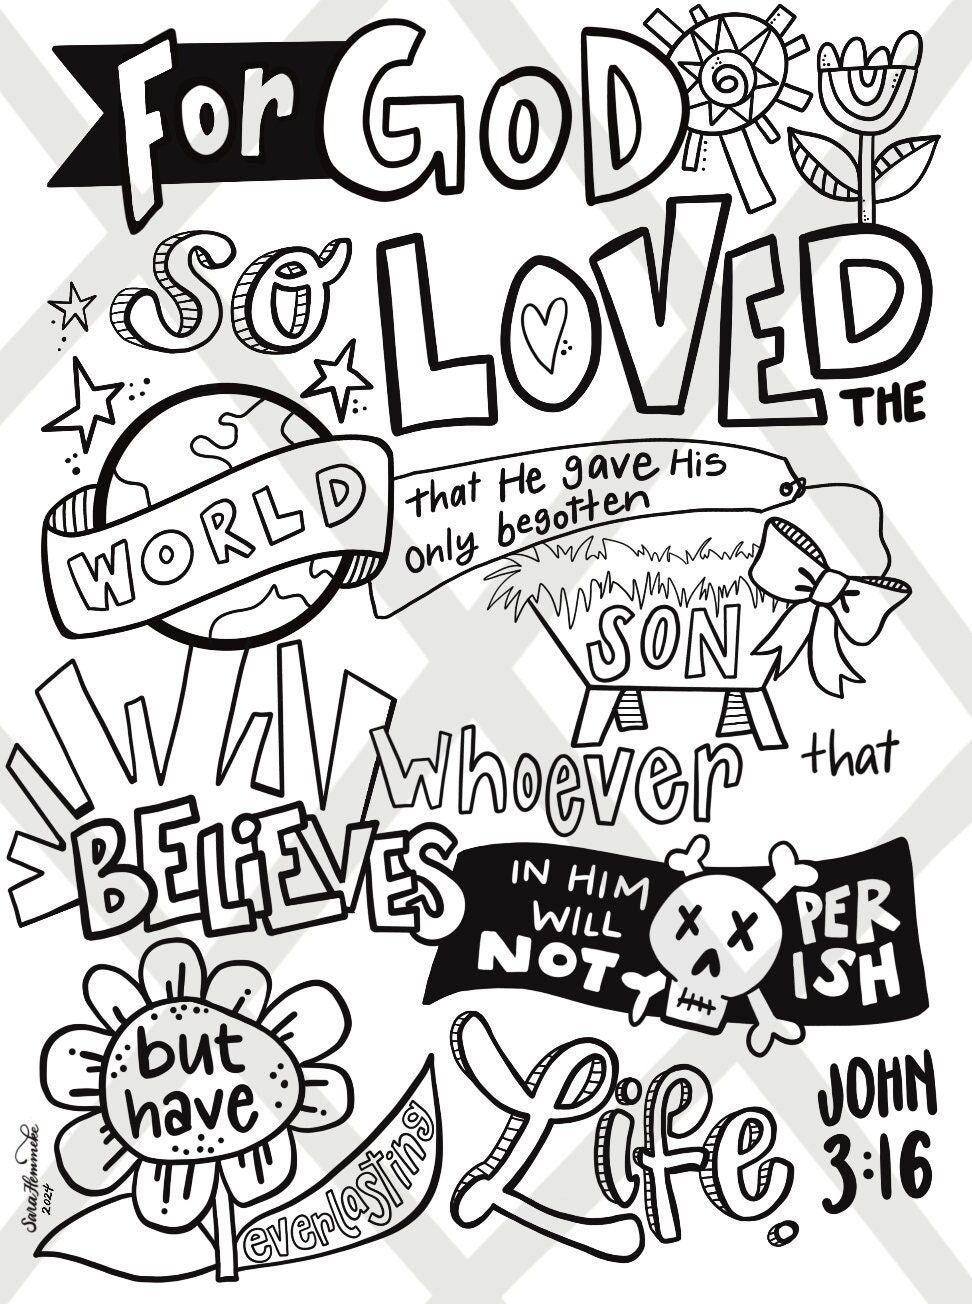 For GOD
so LOVED
THE
WORLD
that He gave His
only begotten
SON
Whoever that
BELiEVES
IN HIM
WILL
NOT
PER
ISH
but
have
everlasting
Life.
JOHN
3:16
Sara Hemmeke
2024